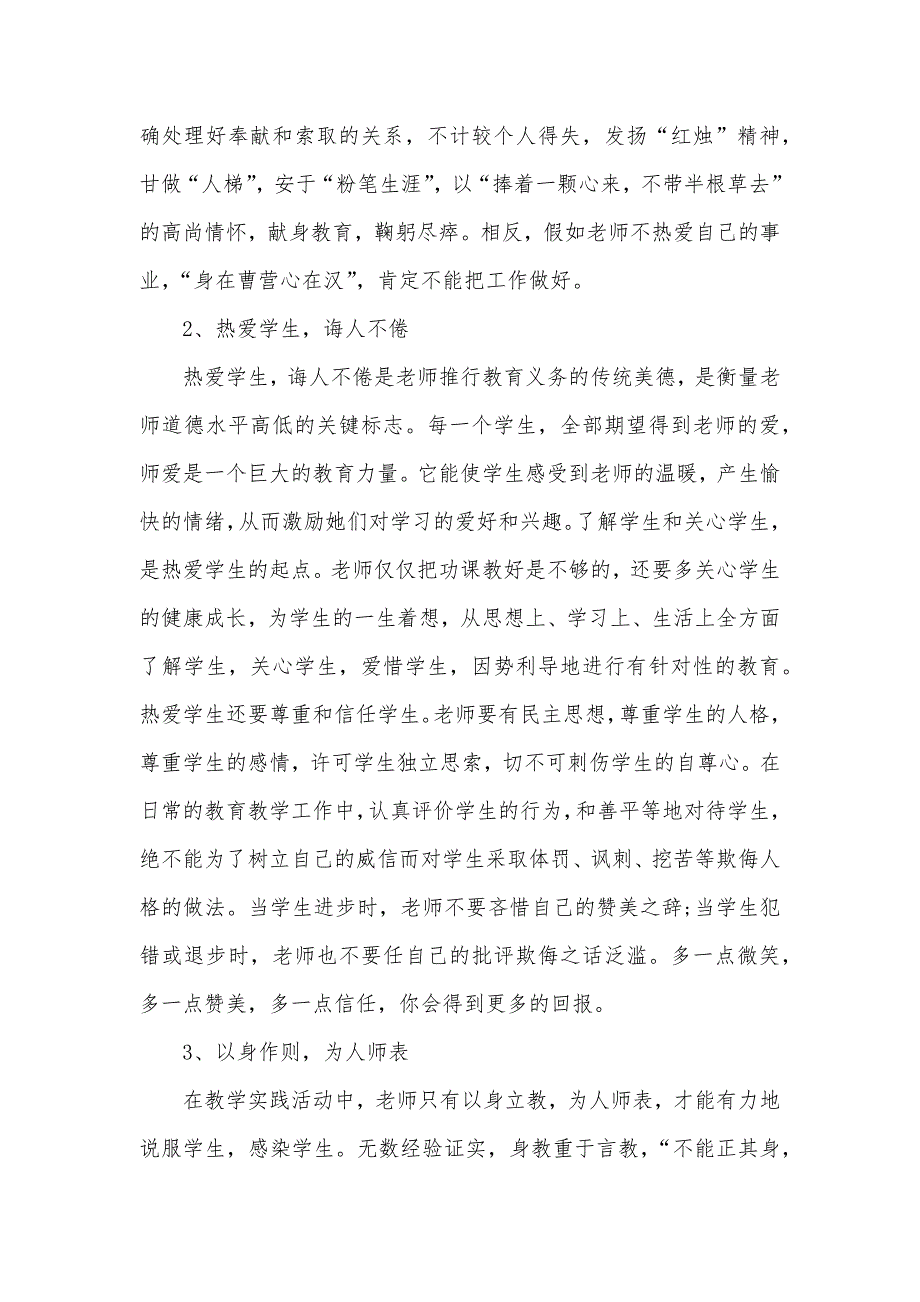 确处理好奉献和索取的关系，不计较个人得失，发扬“红烛”精神，
甘做“人梯”，安于“粉笔生涯”，以“捧着一颗心来，不带半根草去”
的高尚情怀，献身教育，鞠躬尽瘁。相反，假如老师不热爱自己的事
业，“身在曹营心在汉”，肯定不能把工作做好。
2、热爱学生，诲人不倦
热爱学生，诲人不倦是老师推行教育义务的传统美德，是衡量老
师道德水平高低的关键标志。每一个学生，全部期望得到老师的爱，
师爱是一个巨大的教育力量。它能使学生感受到老师的温暖，产生愉
快的情绪，从而激励她们对学习的爱好和兴趣。了解学生和关心学生，
是热爱学生的起点。老师仅仅把功课教好是不够的，还要多关心学生
的健康成长，为学生的一生着想，从思想上、学习上、生活上全方面
了解学生，关心学生，爱惜学生，因势利导地进行有针对性的教育。
热爱学生还要尊重和信任学生。老师要有民主思想，尊重学生的人格，
尊重学生的感情，许可学生独立思索，切不可刺伤学生的自尊心。在
日常的教育教学工作中，认真评价学生的行为，和善平等地对待学生，
绝不能为了树立自己的威信而对学生采取体罚、讽刺、挖苦等欺侮人
格的做法。当学生进步时，老师不要吝惜自己的赞美之辞;当学生犯
错或退步时，老师也不要任自己的批评欺侮之话泛滥。多一点微笑，
多一点赞美，多一点信任，你会得到更多的回报。
3、以身作则，为人师表
在教学实践活动中，老师只有以身立教，为人师表，才能有力地
说服学生，感染学生。无数经验证实，身教重于言教，“不能正其身，